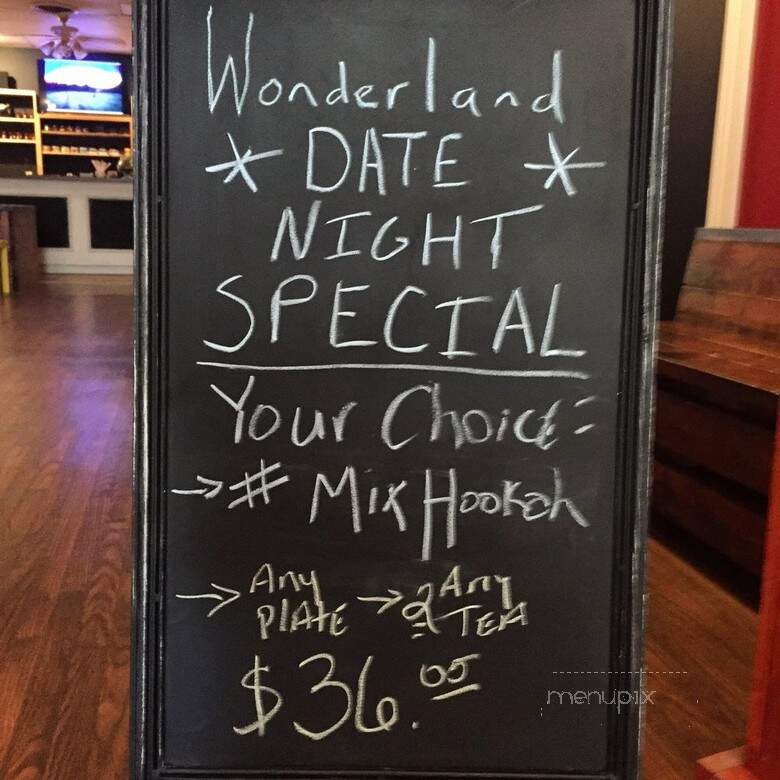 Wonderland
* DATE *
NIGHT
SPECIAL
Your Choice:
→ # Mix Hookah
→ Any → 2 Any
PLATE TEA
$36.00
menupix